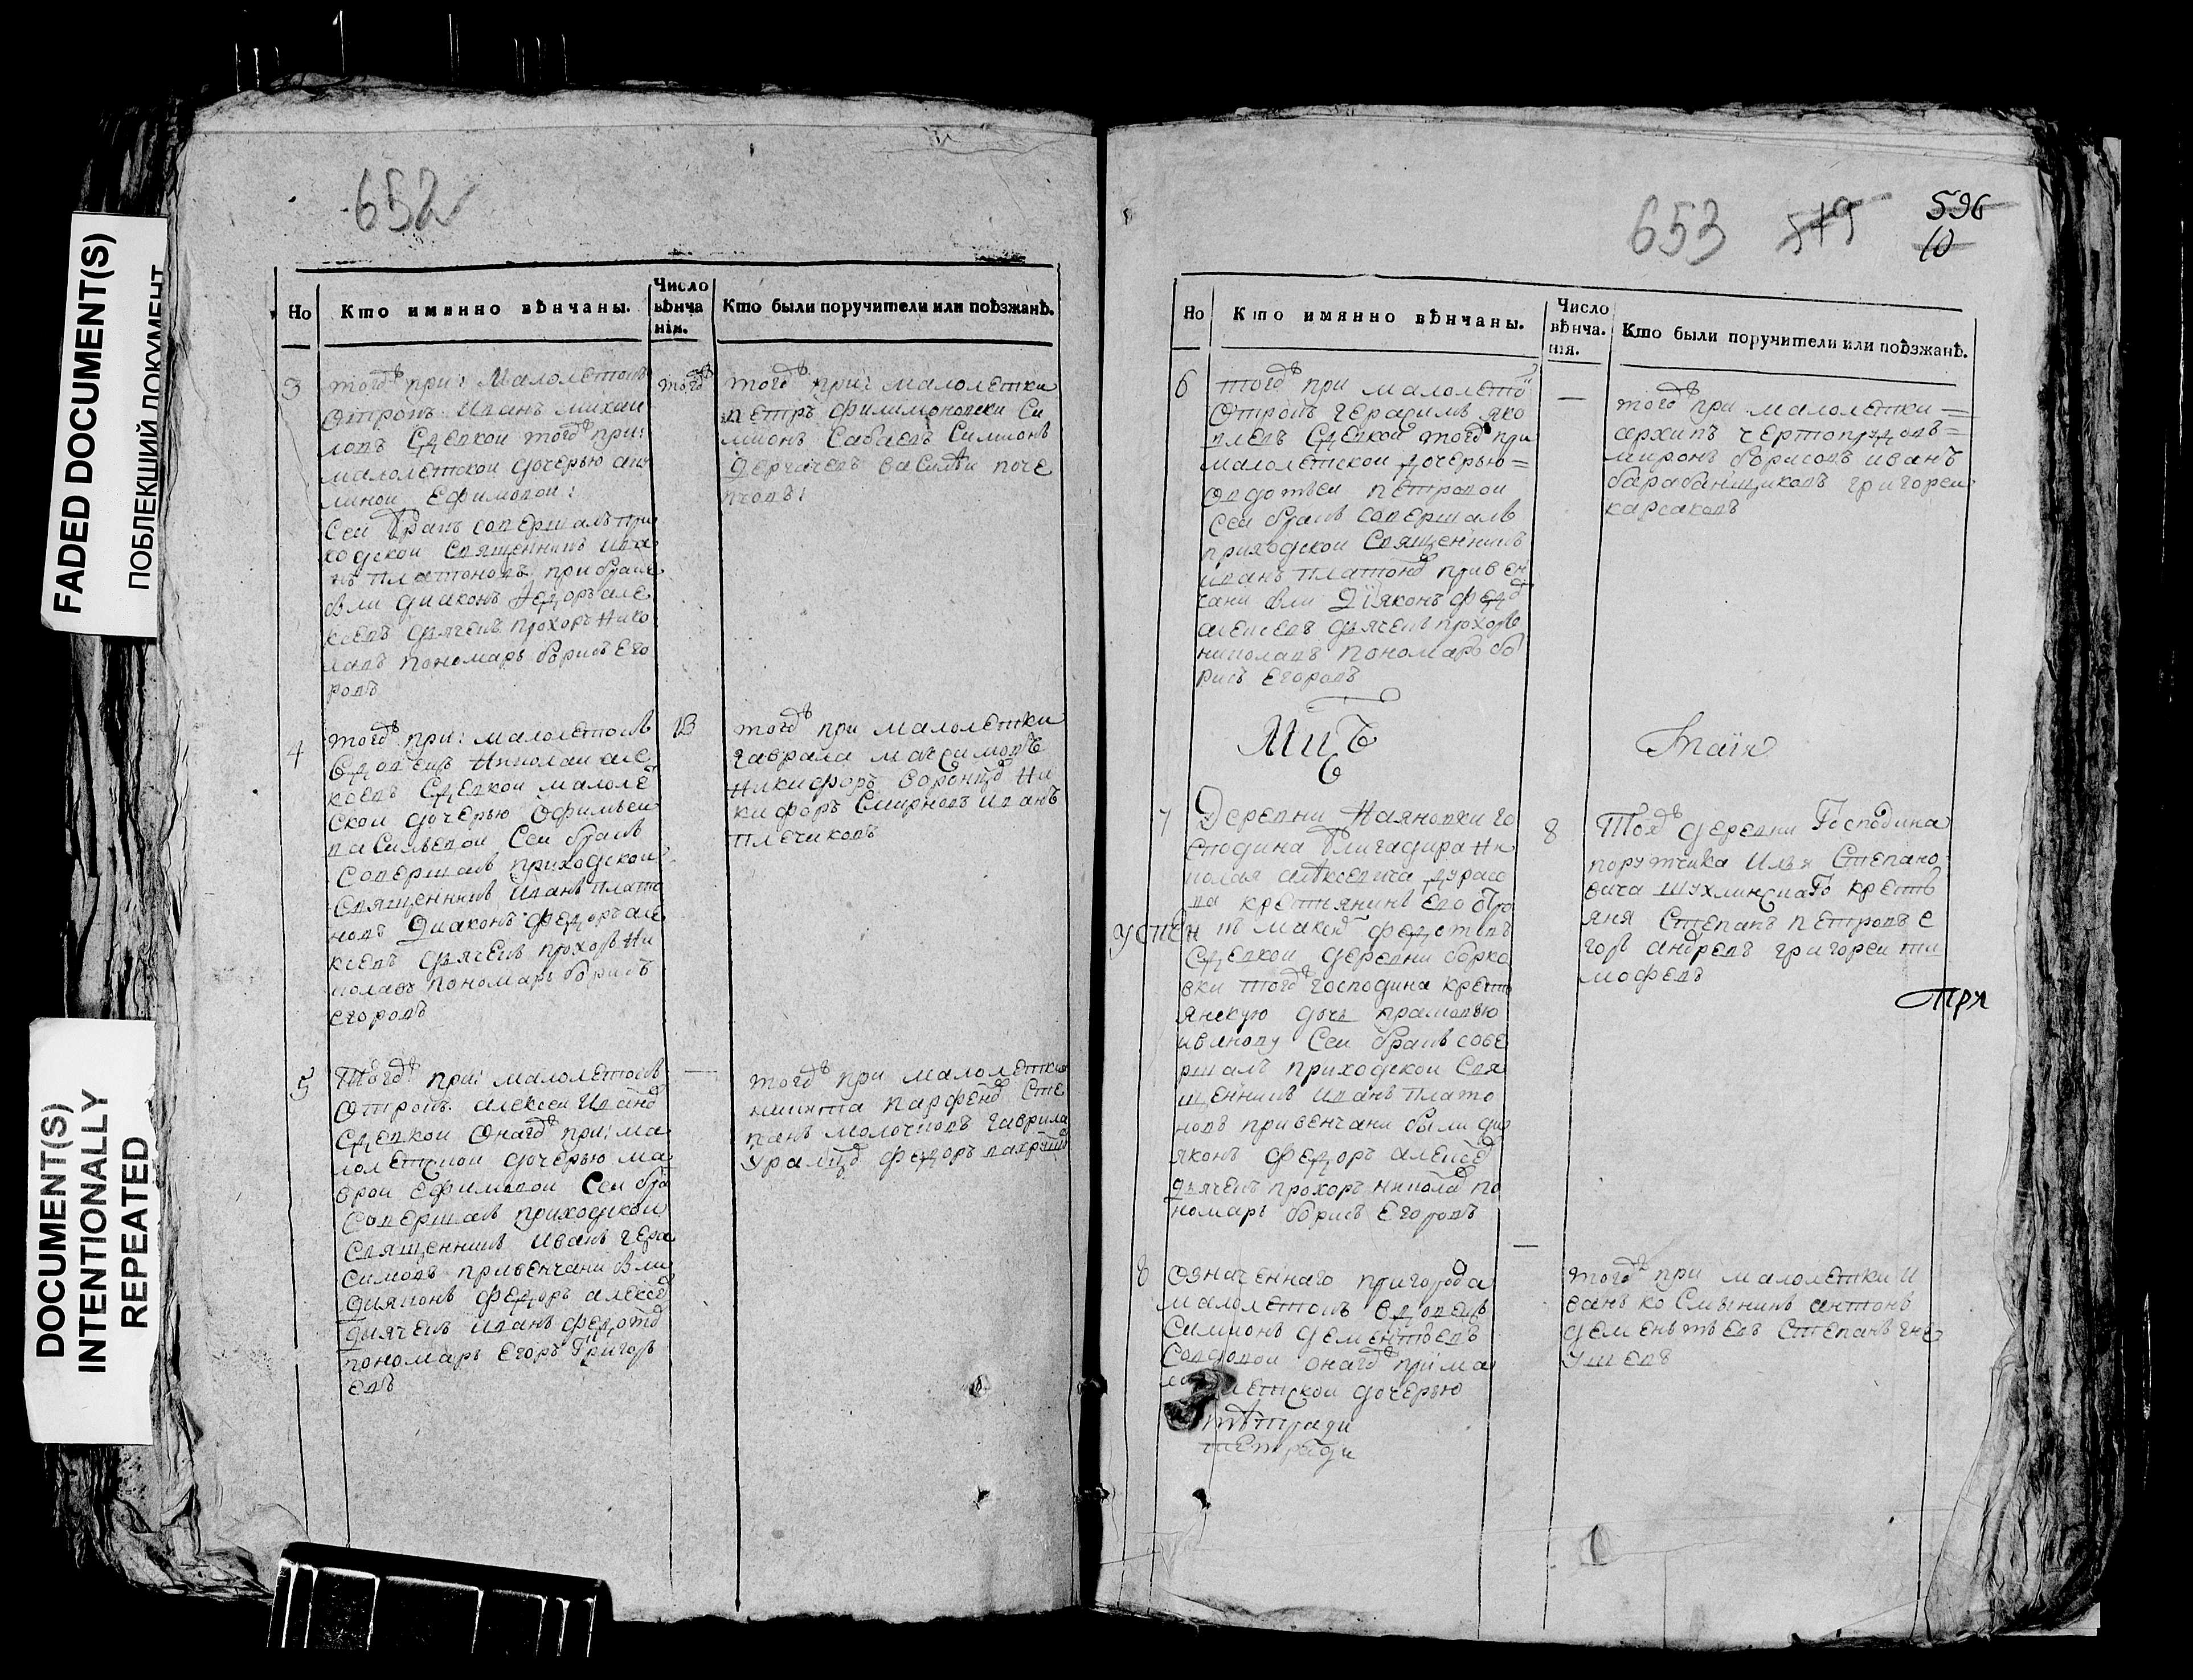 FADED DOCUMENT(S)
ПОБЛЕКШИЙ ДОКУМЕНТ
DOCUMENT(S)
INTENTIONALLY
REPEATED
652
Но
Кто имянно вѣнчаны.
Число
вѣнча
нія.
Кто были поручители или поѣзжанѣ.
3
тогдѣ при: Малолетокъ
Отрокъ Иванъ михаи
ловъ Сдевкой тогдѣ при:
малолетской дочерью
Ефимовой:
Сей бракъ совершалъ при
ходской Священникъ Ива
нъ платоновъ при браке
были диаконъ Федоръ але
ксевъ дьячекъ прохоръ Нико
лавъ пономарь борисъ Его
ровъ
тогдѣ
тогдѣ при: малолетки
петръ филимоновски Си
мионъ Сабаевъ Симионъ
василѣи поче
4
тогдѣ при: малолетокъ
Вдовецъ Николаи але
ксевъ Сдевкой малоле
ской дочерью Офимьеи
васильевой Сей бракъ
Совершалъ приходской
Священникъ Иванъ плато
новъ Диаконъ федоръ але
ксевъ дьячекъ прохоръ Ни
колавъ пономарь борисъ
егоровъ
тогдѣ при малолетки
гаврала максимовъ
Никифоръ воронцо Ни
кифоръ Смирновъ иванъ
плечиковъ
5
Тогдѣ при: малолетокъ
Отрокъ алексеи Ивано
Сдевкой Онагдѣ при: ма
лолетской дочерью ма
врои Ефимовой Сей бра
Совершалъ приходской
Священникъ Иванъ гера
симовъ привенчани были
дияконъ федоръ алексе
дьячекъ иванъ федото
пономарь егоръ Григорь
евъ
—
тогдѣ при малолетки
никита парфено Сте
панъ молочковъ гаврила
федоръ
653 549 596
10
Но
Кто имянно вѣнчаны.
Число
вѣнча.
нія.
Кто были поручители или поѣзжанѣ.
6
тогдѣ при малолето
Отрокъ герасимъ яко
влевъ Сдевкой тогдѣ при
малолетской дочерью=
Овдотьеи петровой
Сей бракъ совершалъ
приходской Священникъ
иванъ платоно при вен
чани были Дияконъ федо
алексевъ дьячекъ прохоръ
николавъ пономарь бо
рисъ егоровъ
—
тогдѣ при малолетки=
архипъ чертопрудовъ=
миронъ борисовъ иванъ
барабанщиковъ григореи
карсаковъ
Маия
7
Деревни Наяновки го
сподина бригадира Ни
колая алѣксевича дурасо
ва крестьянинъ его
федотовъ
Сдевкой деревни борко
вки тогдѣ господина кресть
янскую дочь прасковью
иванову Сей бракъ сове
ршалъ приходской Свя
щенникъ иванъ плато
новъ привенчани были ди
яконъ федоръ алексе
дьячекъ прохоръ николае по
номарь борисъ Егоровъ
8
Тояжѣ деревни Господина
порутчика Илья Степано
вича шухлинскаго кресть
яня Степанъ петровъ е
горъ андревъ григореи ти
мофевъ
При
8
Означеннаго пригорода
малолетокъ вдовецъ
Симионъ дементьевъ
Совдовой онагдѣ при ма
летской дочерью
тѣтради
тетради
—
тогдѣ при малолетки и
ванъ косынкинъ антонъ
дементьевъ Степанъ гне
ушевъ